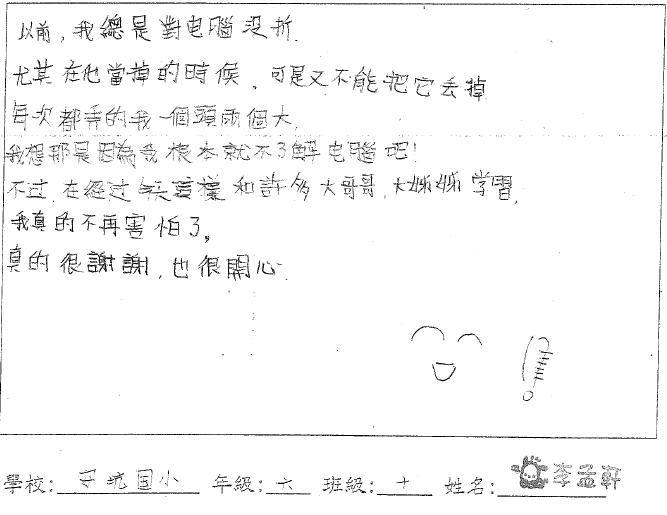 以前,我總是對电腦沒折.
尤其在他當掉的時候,可是又不能把它丟掉
每次都弄的我一個頭兩個大.
我想那是因為我根本就不了解电腦吧!
不过,在經过 和許多大哥哥,大姊姊学習,
我真的不再害怕了。
真的很謝謝,也很開心.
學校: 安坑国小 年級: 六 班級: 十 姓名: 李孟軒